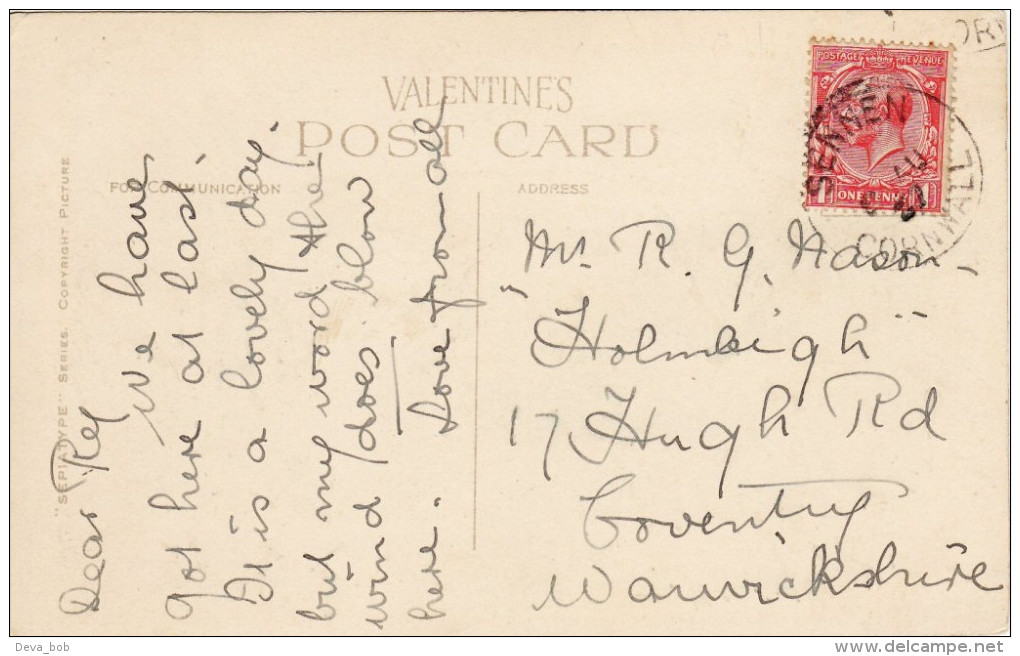 VALENTINES
POST CARD
FOR COMMUNICATION
ADDRESS
"SEPIATYPE" SERIES. COPYRIGHT PICTURE
Dear Reg
We have
got here at last.
It is a lovely day.
but my word the
wind does blow
here. Love from all
POSTAGE REVENUE
ONE PENNY
SENNEN
CORNWALL
Mr R. G. Nason
"Holmleigh"
17 Hugh Rd
Coventry
Warwickshire
Deva_bob
delcampe.net